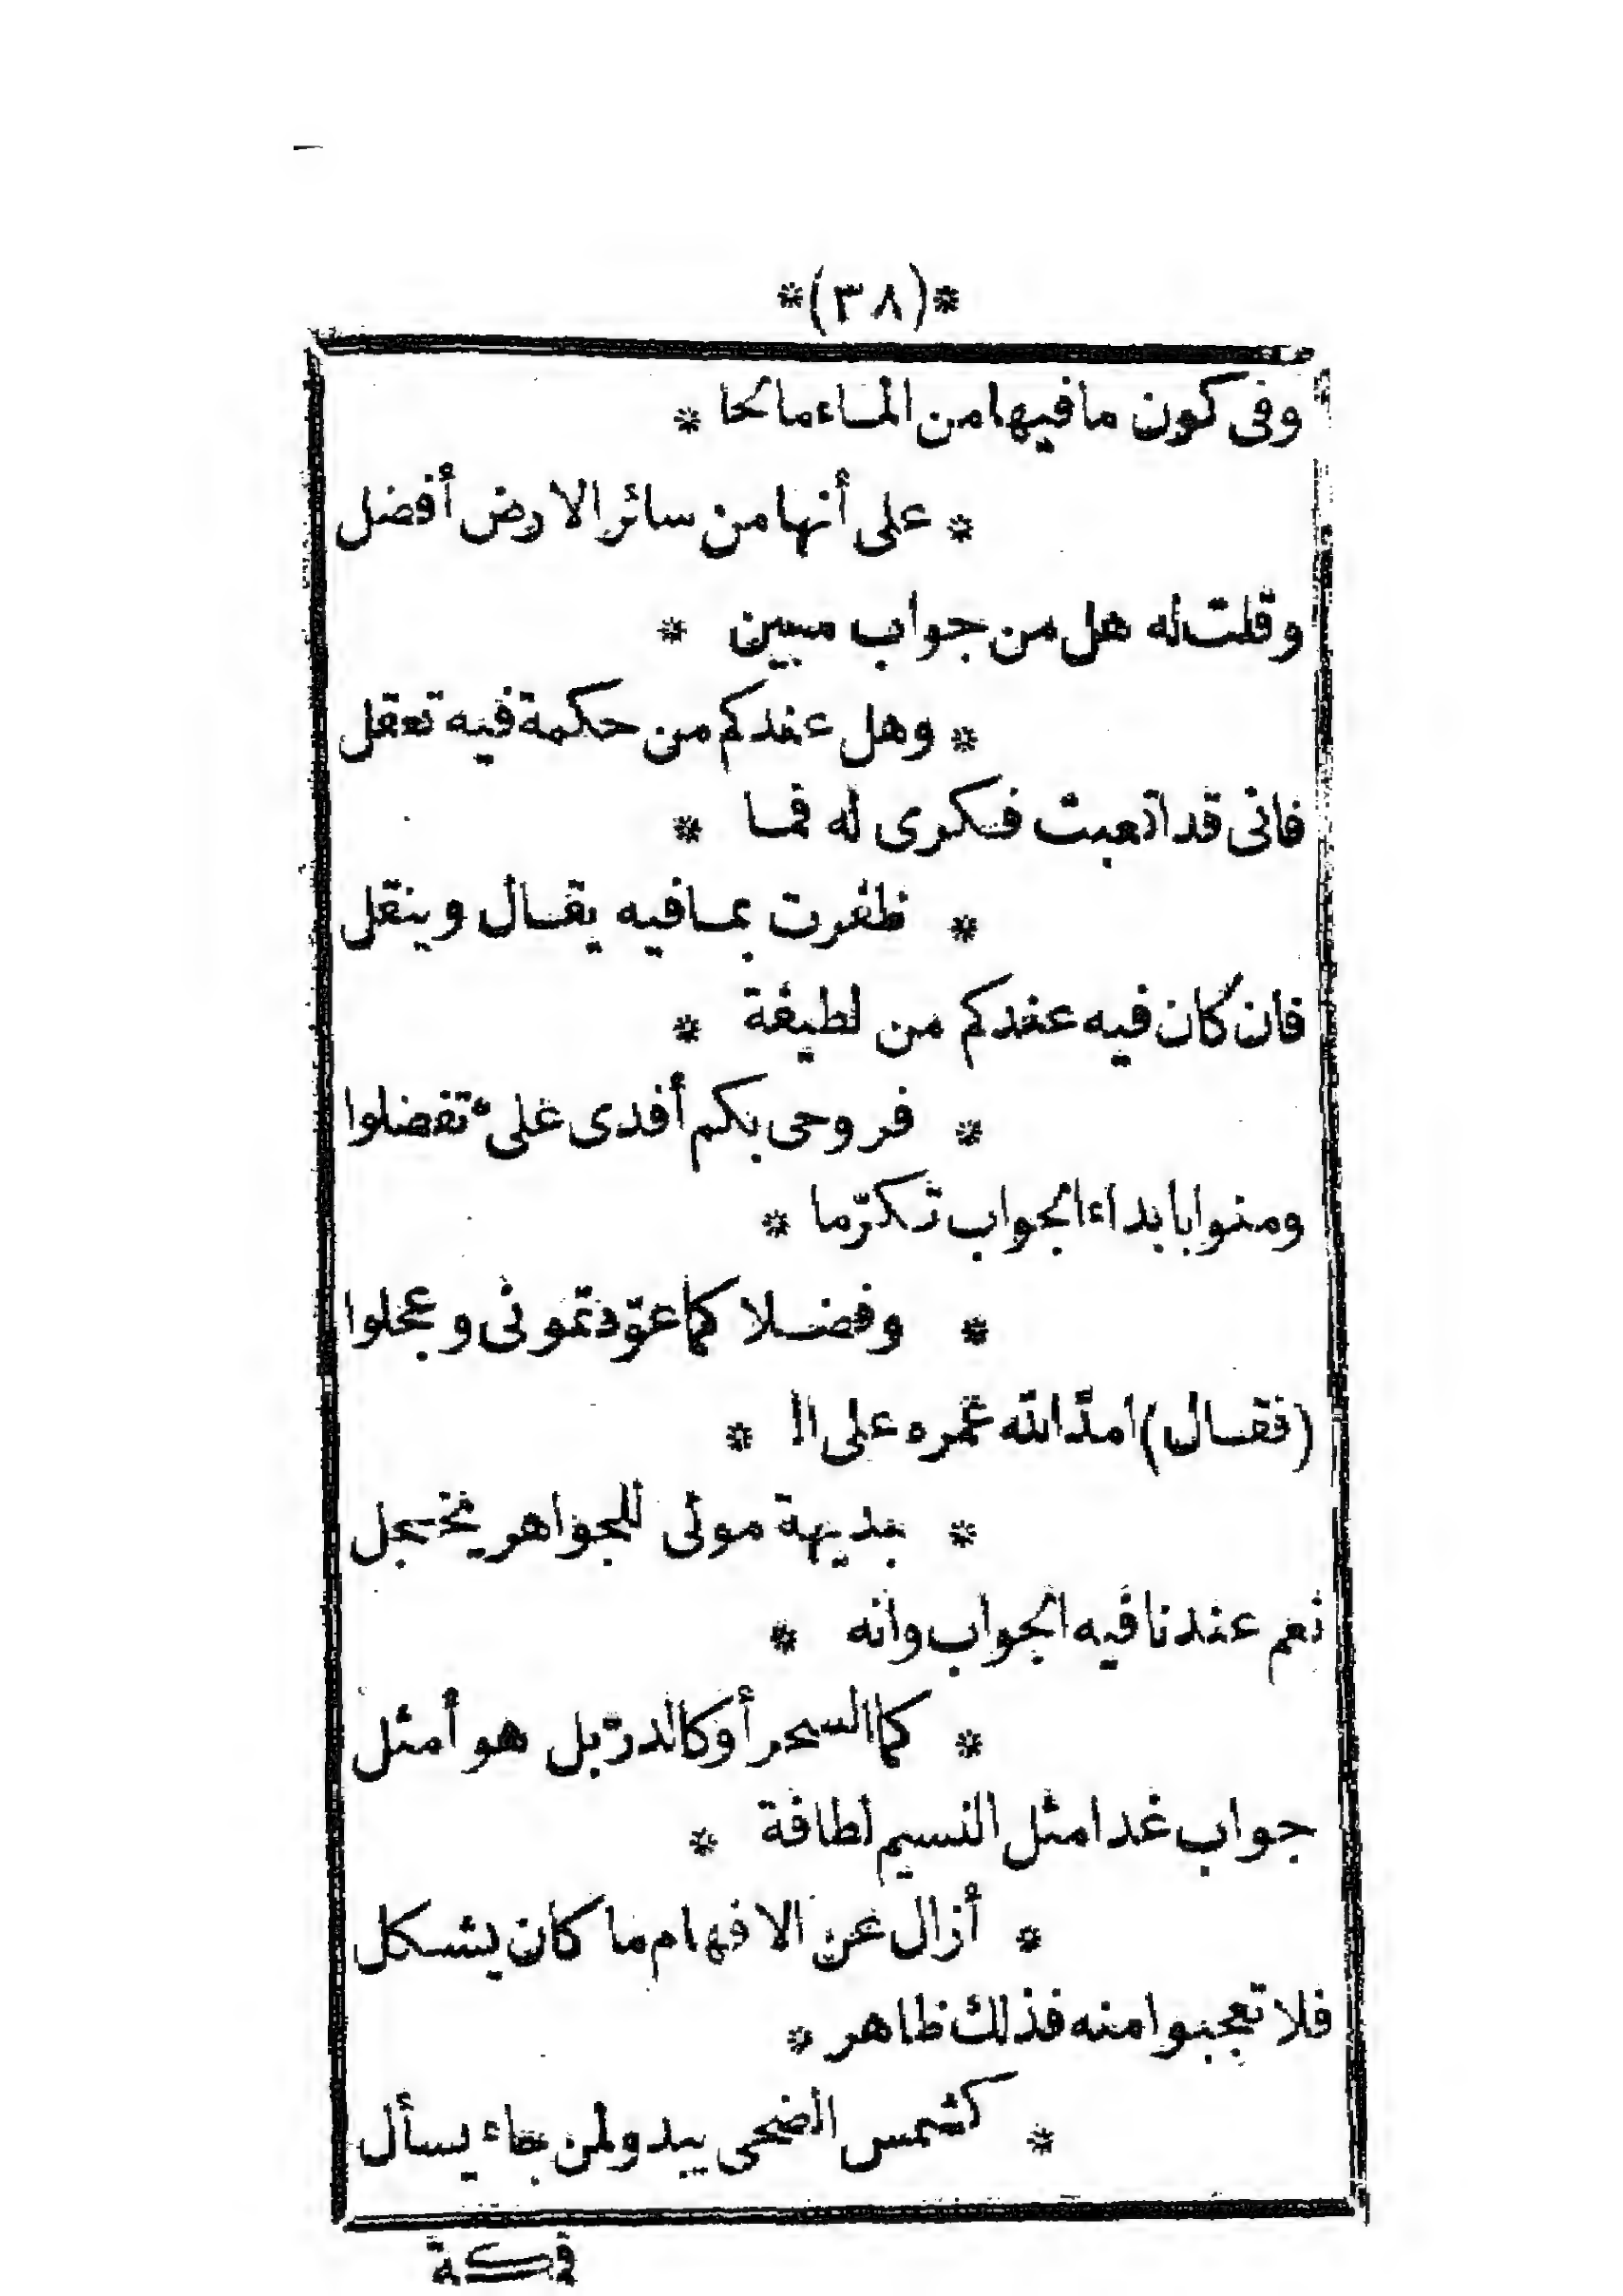 *(٣٨)*
وفى كون مافيها من الماء مالحا *
* على أنها من سائر الارض أفضل
وقلت له هل من جواب مبين *
* وهل عندكم من حكمة فيه تعقل
فانى قد اتعبت فكرى له فما *
* ظفرت بما فيه يقال وينقل
فان كان فيه عندكم من لطيفة *
* فروحى بكم أفدى على تفضلوا
ومنوا بابداء الجواب تكرّما *
* وفضلا كما عوّدتمونى وعجلوا
(فقال) امدّ الله عمره على ال *
* بديهة مولى للجواهر يخجل
نعم عندنا فيه الجواب وانه *
* كما السحر أو كالدرّ بل هو أمثل
جواب غدا مثل النسيم لطافة *
* أزال عن الافهام ما كان يشكل
فلا تعجبوا منه فذلك ظاهر *
* كشمس الضحى يبدو لمن جاء يسأل
فمكة